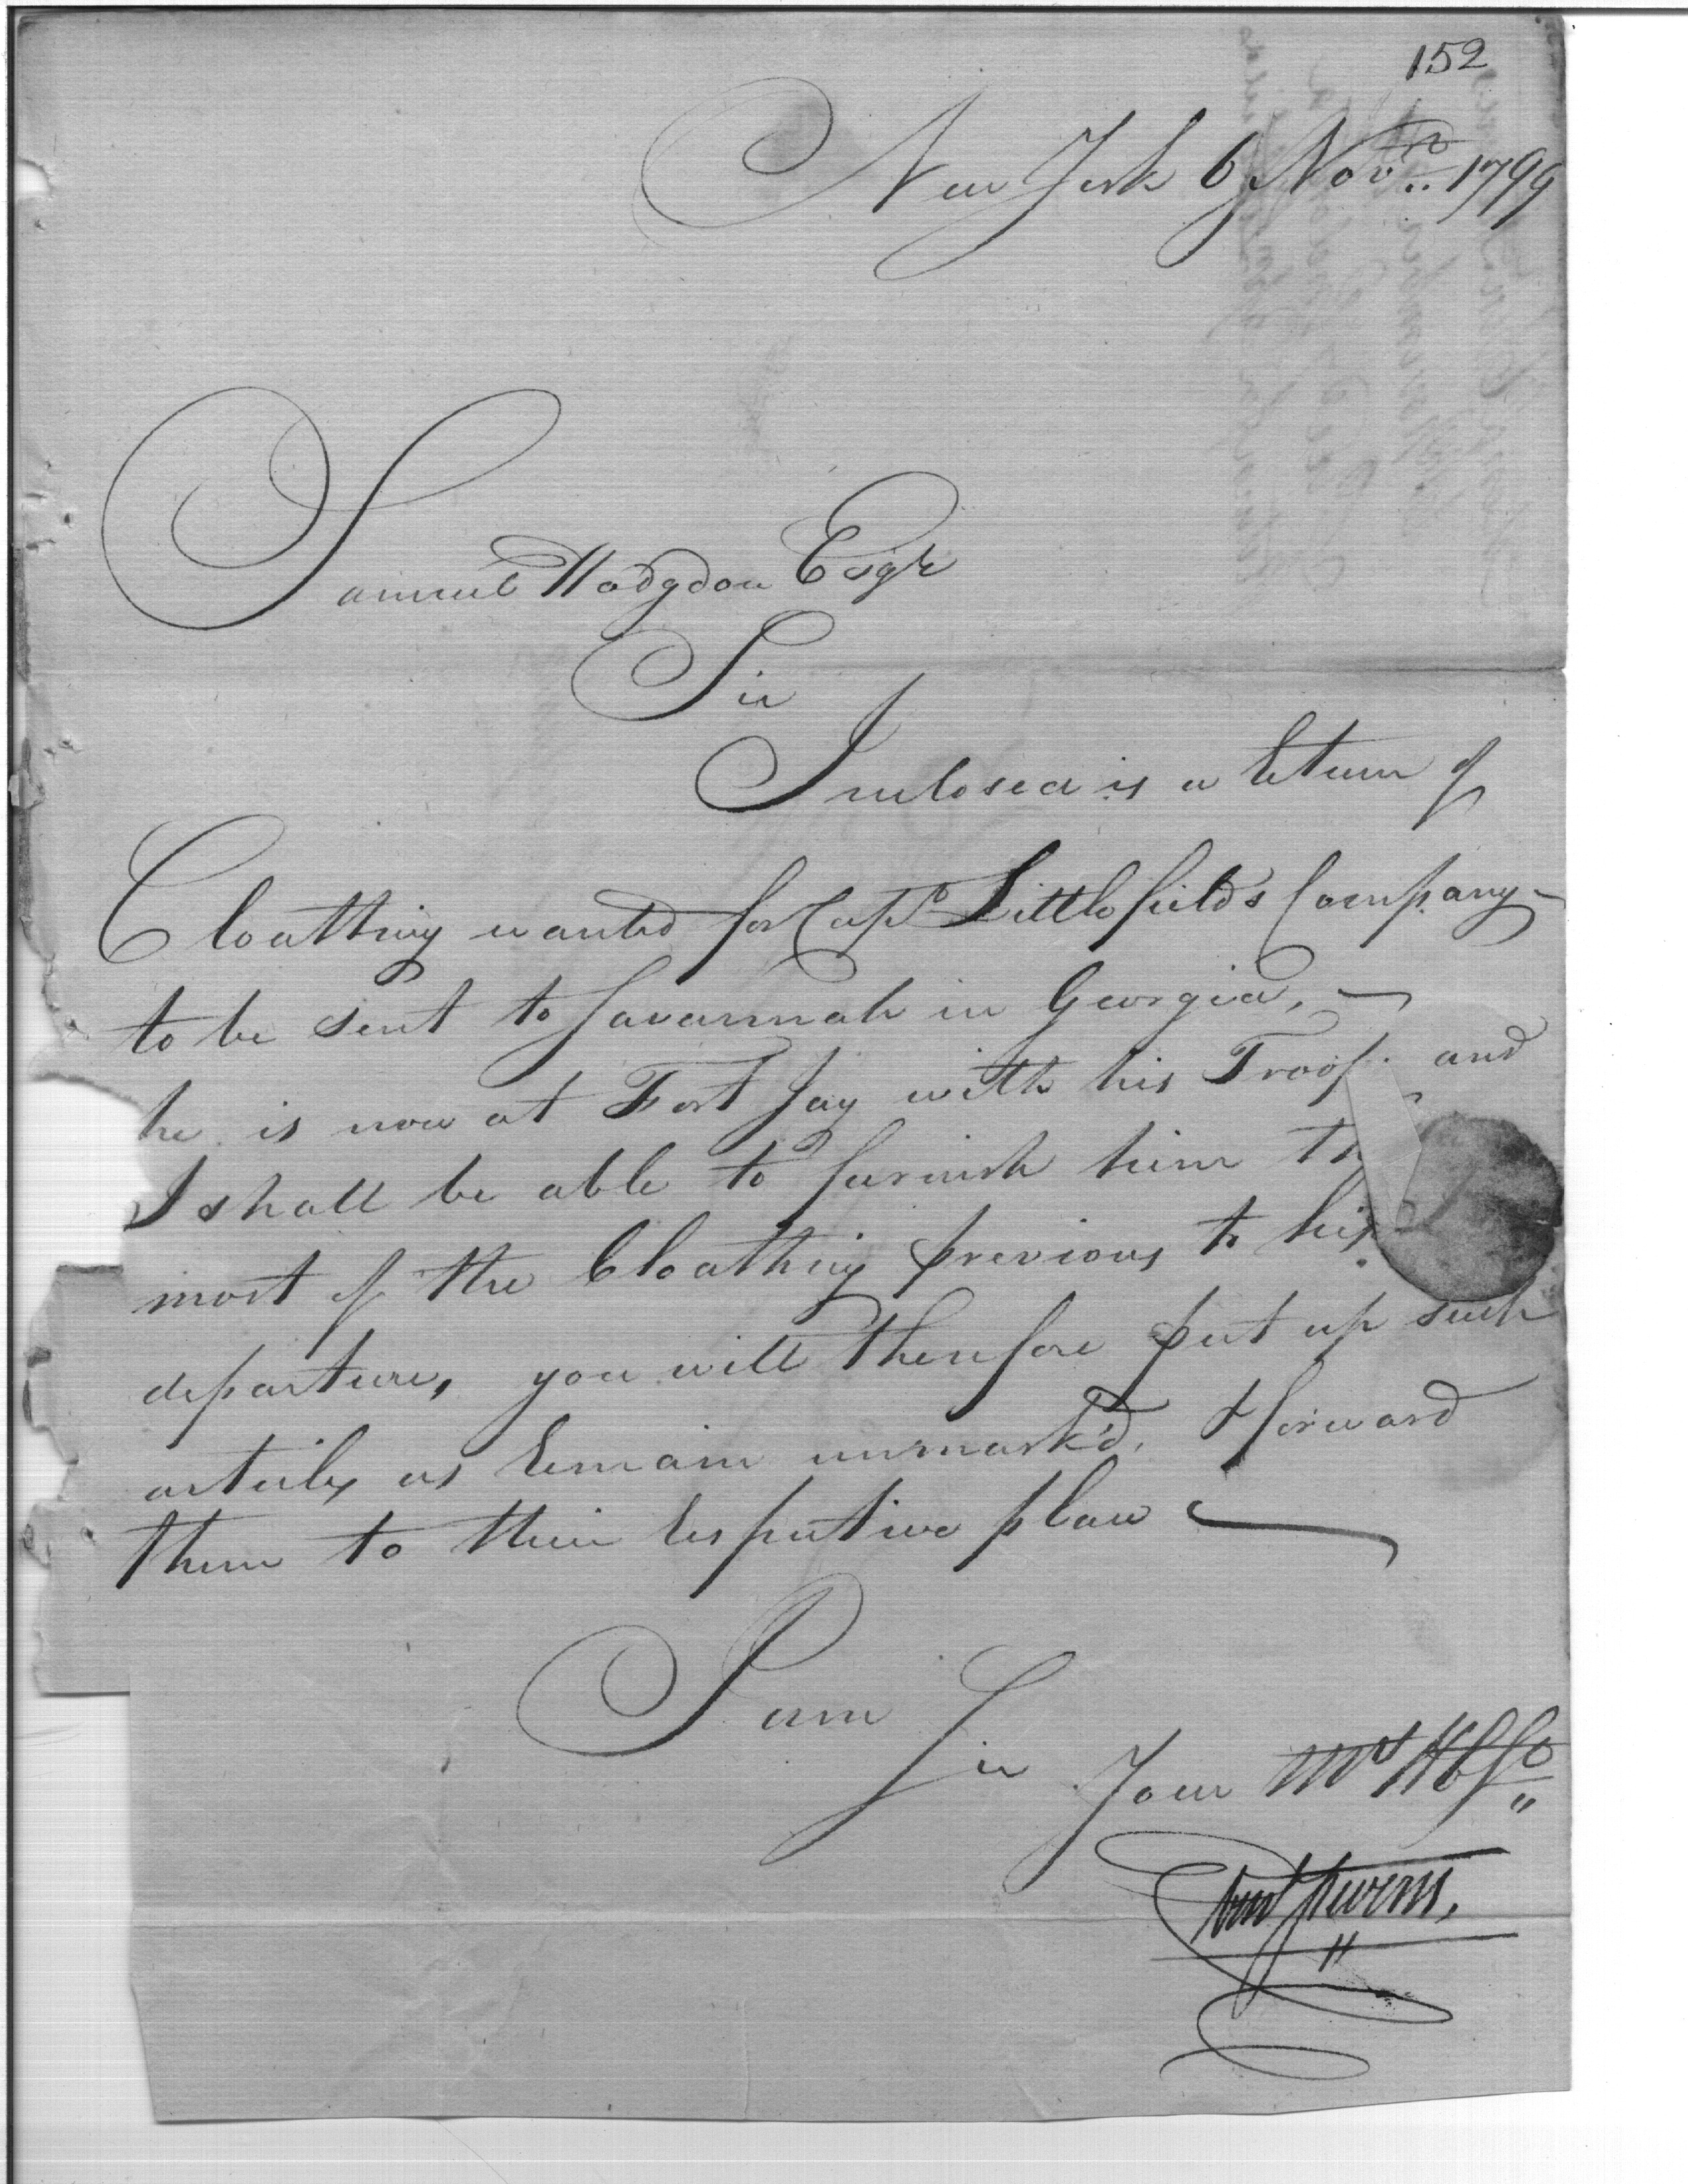 152
New York 6 Novr. 1799
Samuel Hodgdon Esqr
Sir
Inclosed is a return of
Cloathing wanted for Capt Littlefield's Company -
to be sent to Savannah in Georgia, -
he is now at Fort Jay with his Troops and
I shall be able to furnish him
most of the Cloathing previous to his
departure, you will therefore put up such
articles as remain unmark'd, & forward
them to their respective place
I am
Sir Your Mo Hb St
Eben Stevens.